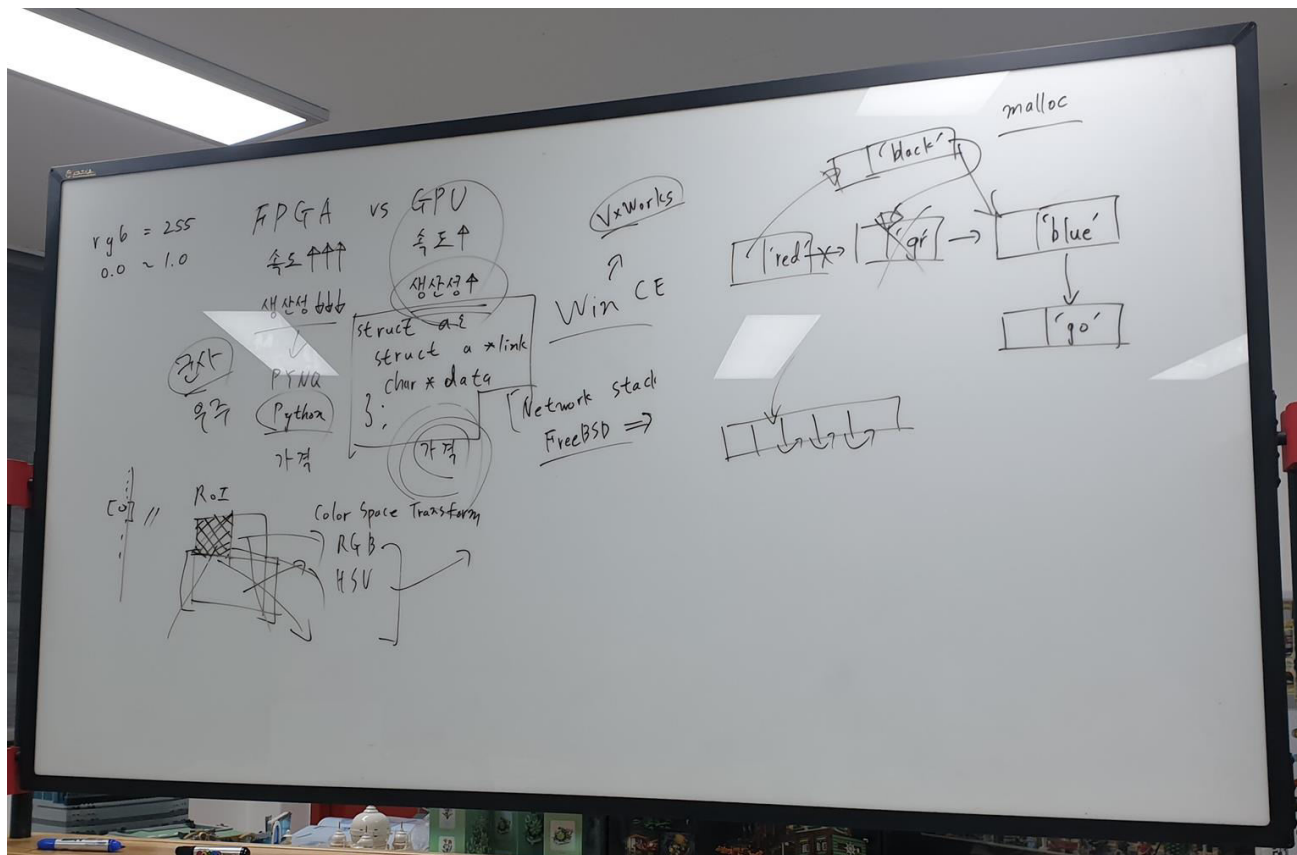 rgb = 255
0.0 ~ 1.0
FPGA vs GPU
속도↑↑↑
속도↑
생산성↓↓↓
생산성↑
군사
우주
PYNQ
Python
가격
struct a {
struct a *link
char * data
};
가격
VxWorks
↑
Win CE
Network stack
FreeBSD ⇒
malloc
'black'
'red'
'gr'
→
'blue'
'go'
[0] //
RoI
Color Space Transform
RGB
HSV